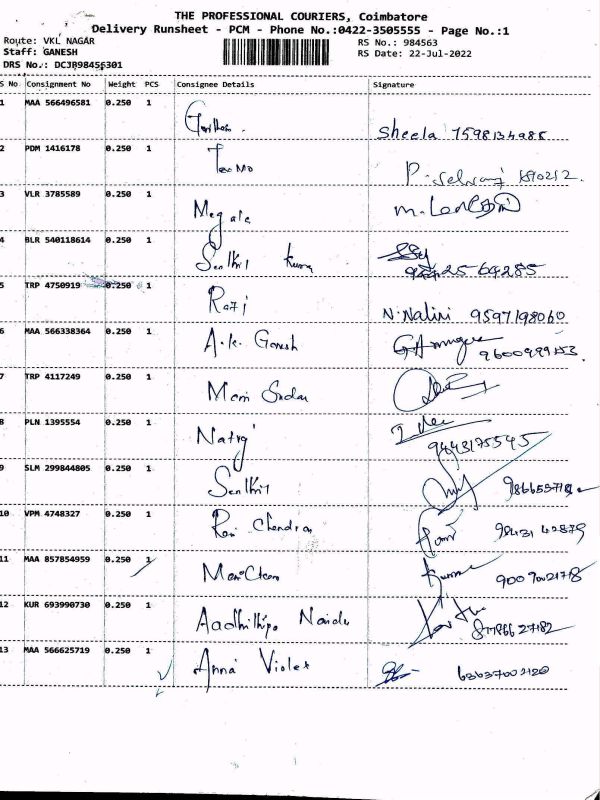 THE PROFESSIONAL COURIERS, Coimbatore
Delivery Runsheet - PCM - Phone No.:0422-3505555 - Page No.:1
Route: VKL NAGAR
RS No.: 984563
Staff: GANESH
RS Date: 22-Jul-2022
DRS No.: DCJR98456301
S No Consignment No Weight PCS Consignee Details Signature
1 MAA 566496581 0.250 1
Sheela 7598134985
2 PDM 1416178 0.250 1
P. Selvaraj
3 VLR 3785589 0.250 1 Megala
4 BLR 540118614 0.250 1 Senthil Kumar
5 TRP 4750919 0.250 1 Raji N. Nalini 9597198060
6 MAA 566338364 0.250 1 A.K. Ganesh
7 TRP 4117249 0.250 1 Mani
8 PLN 1395554 0.250 1 Natraj 9443175545
9 SLM 299844805 0.250 1 Senthil
10 VPM 4748327 0.250 1 Ram Chandran 98431 42879
11 MAA 857854959 0.250 1 Kumar 9009002178
12 KUR 693990730 0.250 1 Aadhithya Naidu
13 MAA 566625719 0.250 1 Anna Violet